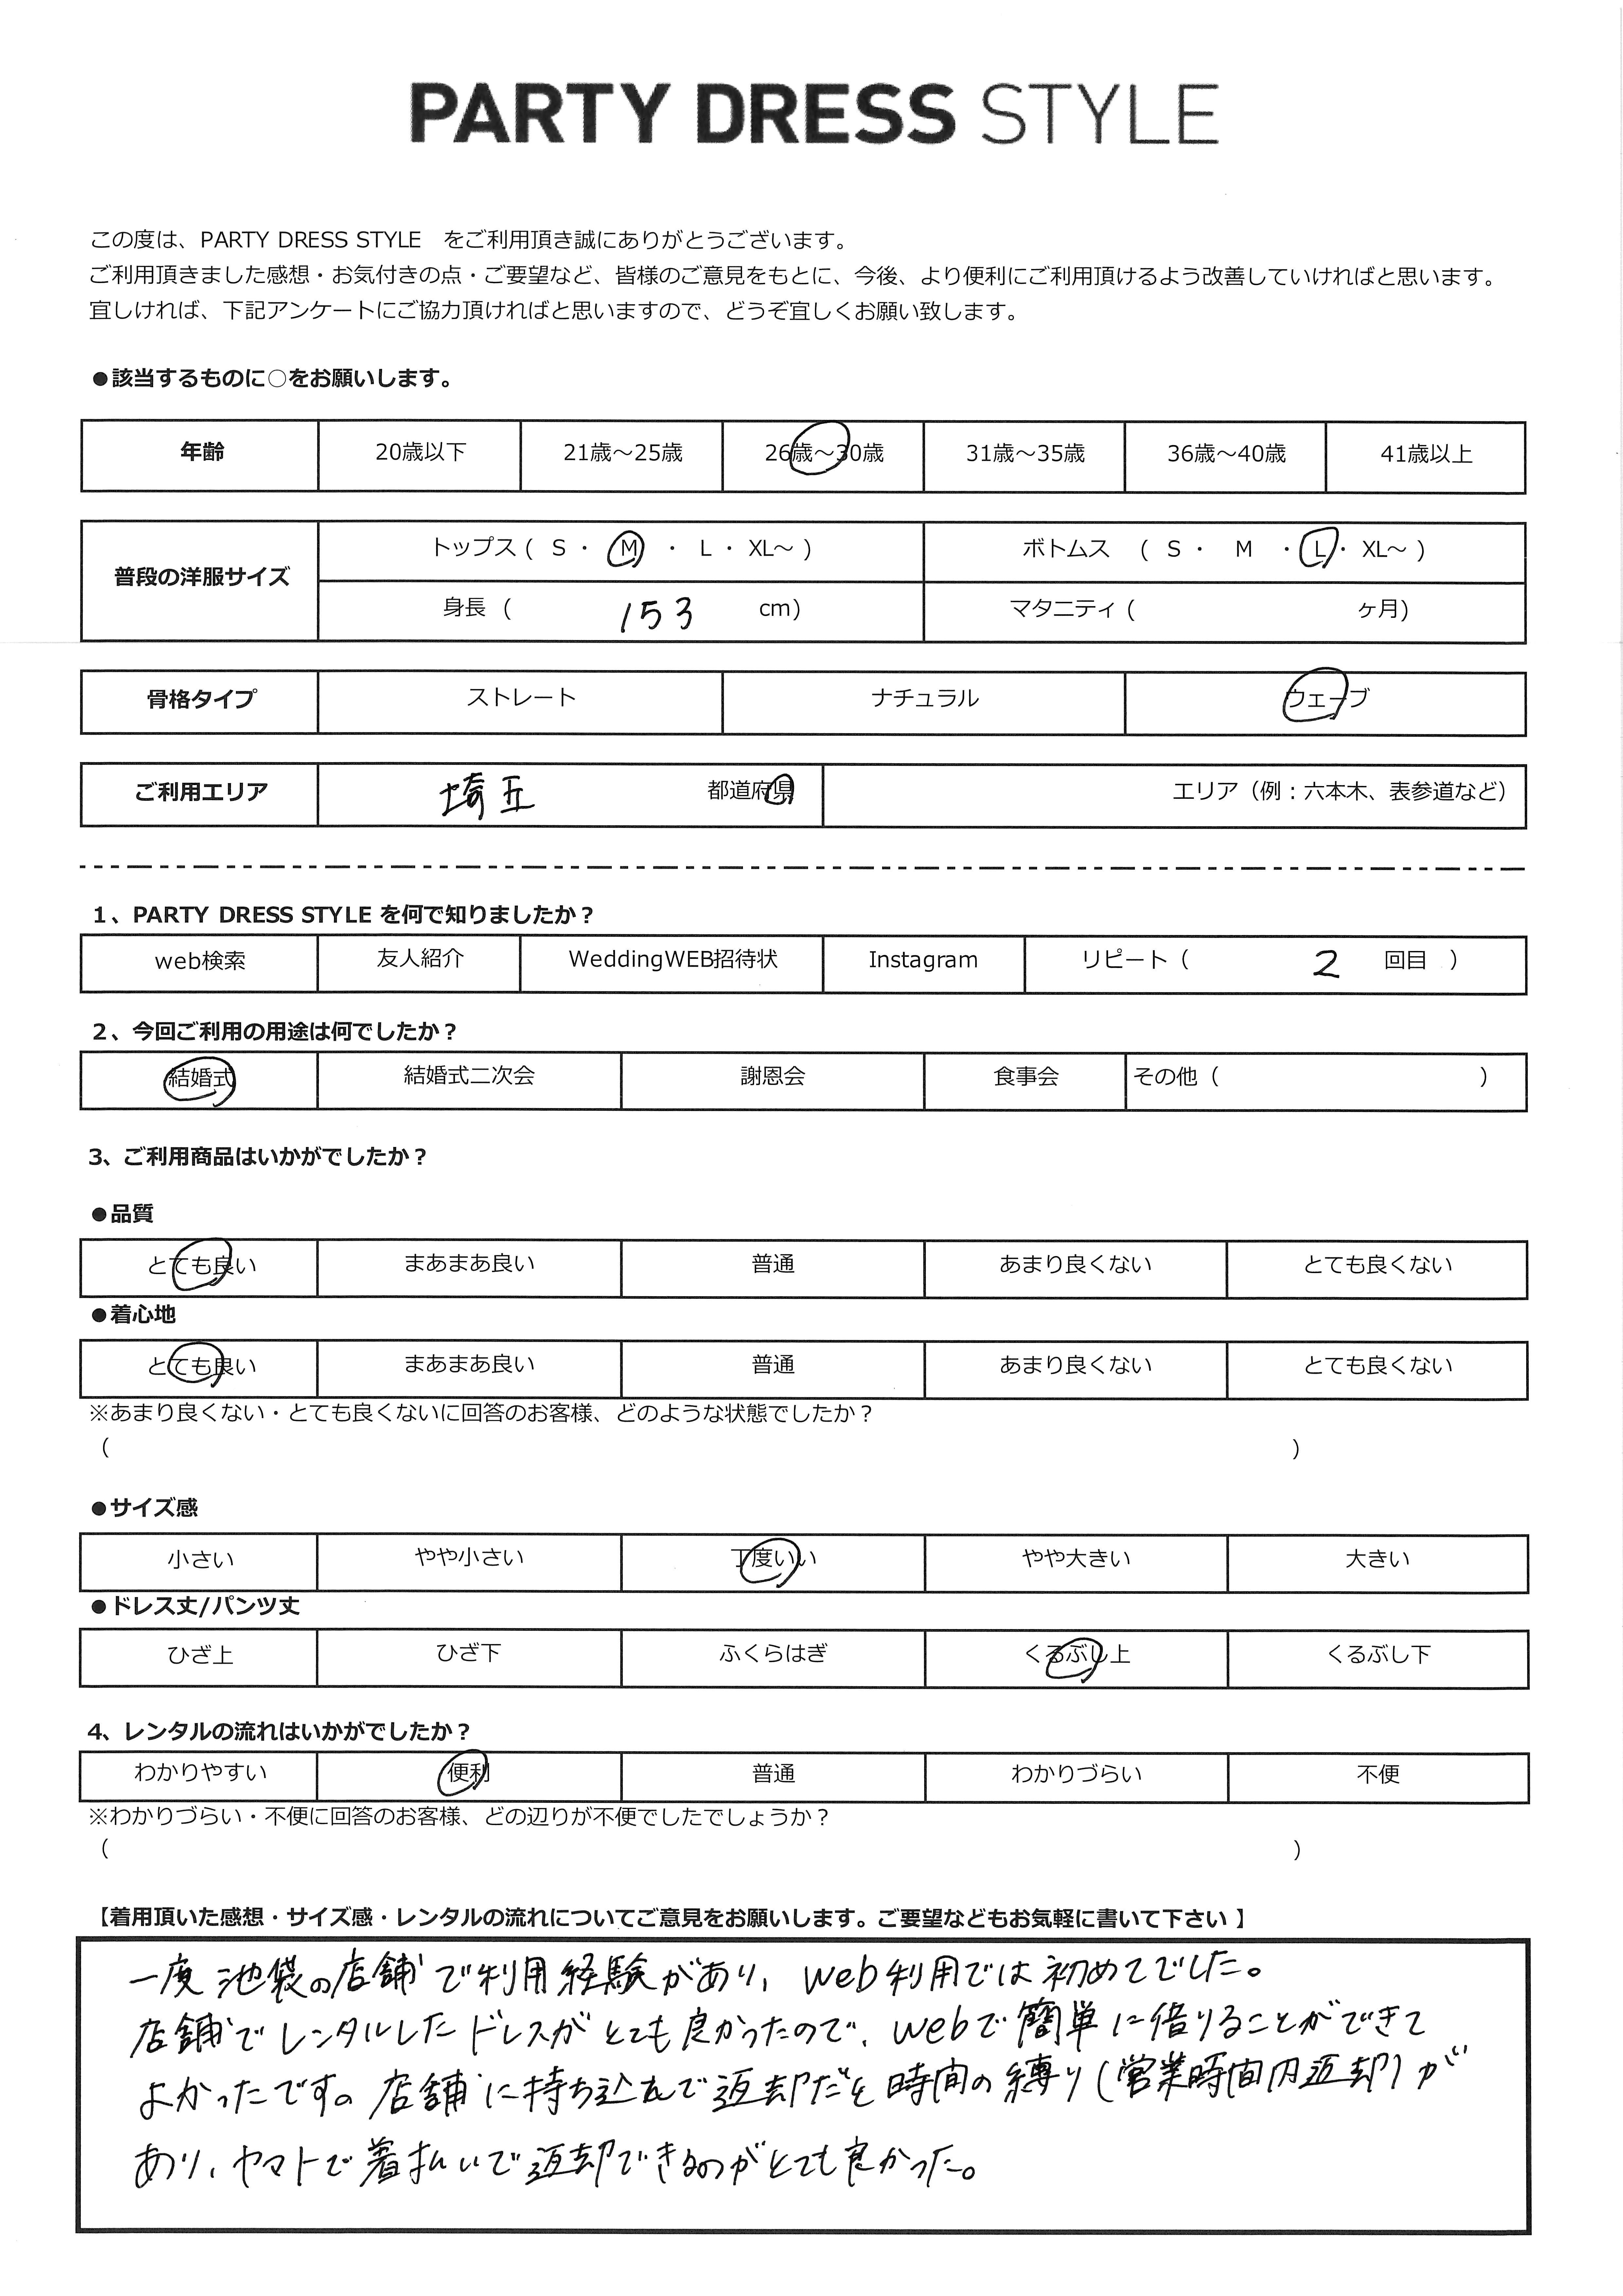 PARTY DRESS STYLE
この度は、PARTY DRESS STYLE　をご利用頂き誠にありがとうございます。
ご利用頂きました感想・お気付きの点・ご要望など、皆様のご意見をもとに、今後、より便利にご利用頂けるよう改善していければと思います。
宜しければ、下記アンケートにご協力頂ければと思いますので、どうぞ宜しくお願い致します。
●該当するものに○をお願いします。
年齢 20歳以下 21歳～25歳 26歳～30歳 31歳～35歳 36歳～40歳 41歳以上
普段の洋服サイズ トップス ( S ・ M ・ L ・ XL～ ) ボトムス ( S ・ M ・ L ・ XL～ )
身長 ( 153 cm) マタニティ ( ヶ月)
骨格タイプ ストレート ナチュラル ウェーブ
ご利用エリア 埼玉 都道府県 エリア（例：六本木、表参道など）
1、PARTY DRESS STYLE を何で知りましたか？
web検索 友人紹介 WeddingWEB招待状 Instagram リピート（ 2 回目 ）
2、今回ご利用の用途は何でしたか？
結婚式 結婚式二次会 謝恩会 食事会 その他（ ）
3、ご利用商品はいかがでしたか？
●品質
とても良い まあまあ良い 普通 あまり良くない とても良くない
●着心地
とても良い まあまあ良い 普通 あまり良くない とても良くない
※あまり良くない・とても良くないに回答のお客様、どのような状態でしたか？
（ ）
●サイズ感
小さい やや小さい 丁度いい やや大きい 大きい
●ドレス丈/パンツ丈
ひざ上 ひざ下 ふくらはぎ くるぶし上 くるぶし下
4、レンタルの流れはいかがでしたか？
わかりやすい 便利 普通 わかりづらい 不便
※わかりづらい・不便に回答のお客様、どの辺りが不便でしたでしょうか？
（ ）
【着用頂いた感想・サイズ感・レンタルの流れについてご意見をお願いします。ご要望などもお気軽に書いて下さい 】
一度 池袋の店舗で利用経験があり、web利用では初めてでした。
店舗でレンタルしたドレスがとても良かったので、webで簡単に借りることができて
よかったです。店舗に持ち込んで返却だと時間の縛り(営業時間内返却)が
あり、ヤマトで着払いで返却できるのがとても良かった。